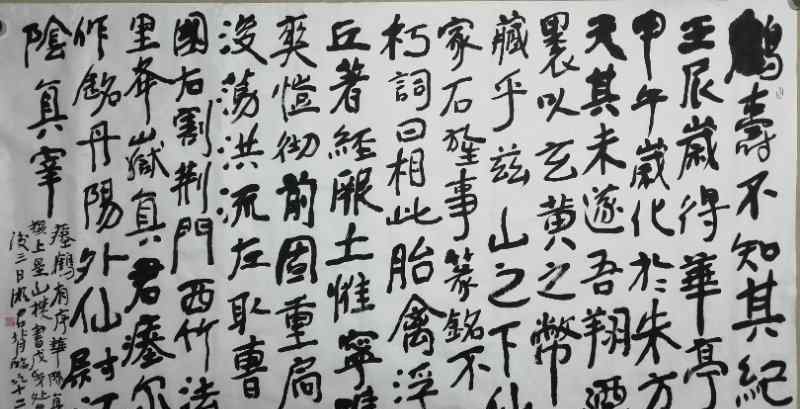 鶴壽不知其紀
壬辰歲得華亭
甲午歲化於朱方
天其未遂吾翔
裹以玄黃之幣
藏乎茲山之下仙
家石旌事篆銘不
朽詞曰相此胎禽浮
丘著經厥土惟寧
爽愷彻前固重扃
沒蕩洪流左取曹
國右割荊門西竹法
里奔嶽真君瘞爾
作銘丹陽外仙尉江
陰真宰
瘞鶴有序華陽真
撰上皇山樵書戊戌處
後三日